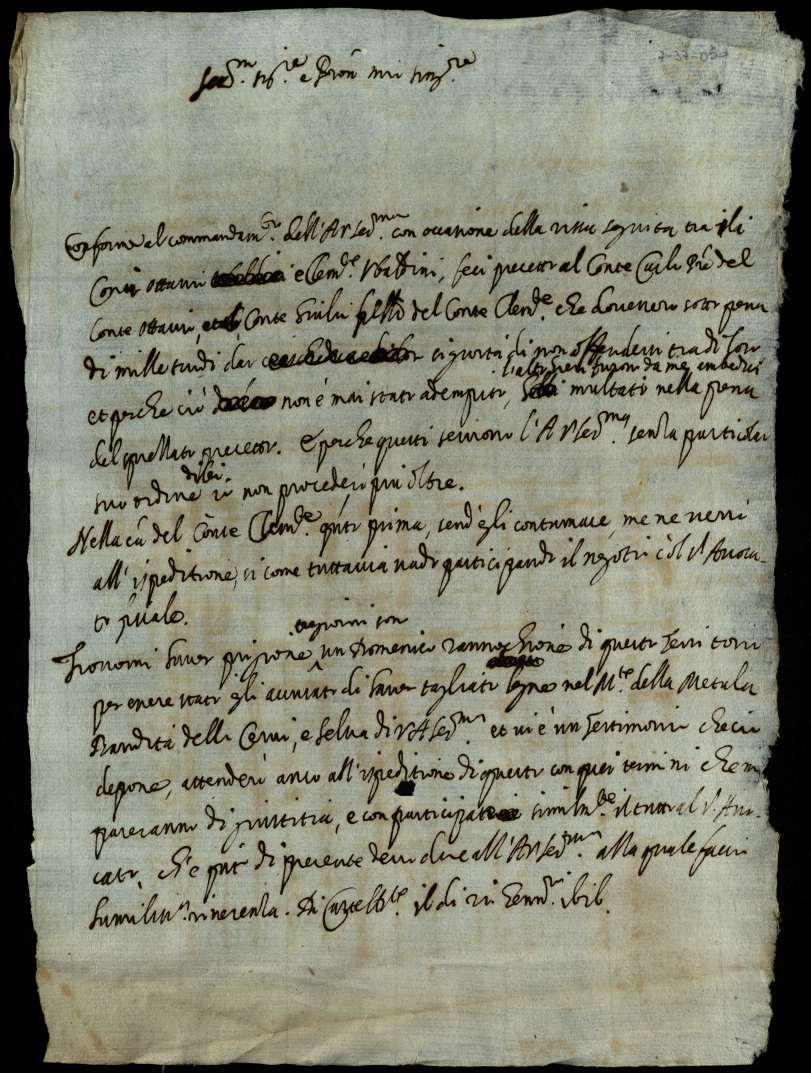 7-37-050
Ser.mo Sig.re e Pron mio sing.re
Conforme al commandam.to dell'A V Ser.ma con occasione della rissa seguita tra ili
Conti Ottavio e Clem.te Ubaldini, feci precetto al Conte Carlo del
Conte Ottavio, et al Conte Giulio del Conte Clem.te che dovessero sotto pena
di mille scudi dar sigurtà di non offendersi tra di loro
et perche ciò non è mai stato adempito, furon da me ambedui
multati nella pena
del precetto. E perche questi servono l'A V Ser.ma senza particolar
suo ordine di lei io non procederò più oltre.
Nella cã del Conte Clem.te prima, send'egli contumace, me ne verrò
all'ispeditione, si come tuttavia vado participando il negotio col S.r Avoca-
to
Trovomi haver prigione tre giorni son un Domenico di questo Territorio
per essere stato gli avviato di haver tagliato legne nel M.te della Metula
Bandita delli Cervi, e Selva di V A Ser.ma et vi è un Testimonio che ciò
depone, attenderò anco all'ispeditione di questo con quei termini che mi
pareranno di giustitia, e con participar simil.m.te il tutto al S.r Avo-
cato, ch'è q.to di presente devo dire all'A V Ser.ma alla quale faccio
humiliss.a riverenza. Di il di 21 Genn.ro 1616.